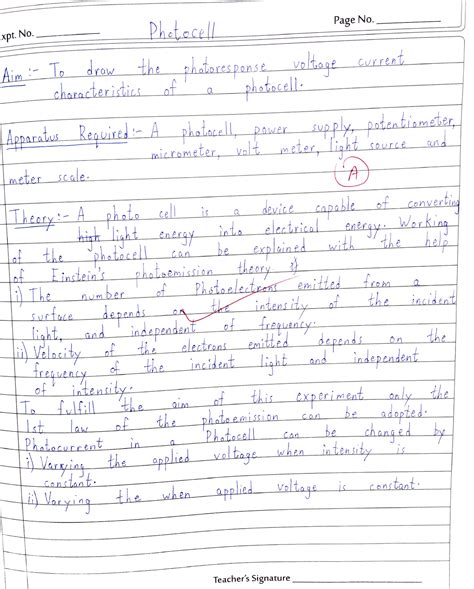 Expt. No.
Page No.
Photocell
Aim :- To draw the photoresponse voltage current
characteristics of a photocell.
Apparatus Required :- A photocell, power supply, potentiometer,
micrometer, volt meter, light source and
meter scale.
A
Theory :- A photo cell is a device capable of converting
high light energy into electrical energy. Working
of the photocell can be explained with the help
of Einstein's photoemission theory
i) The number of Photoelectrons emitted from a
surface depends on the intensity of the incident
light, and independent of frequency.
ii) Velocity of the electrons emitted depends on the
frequency of the incident light and independent
of intensity.
To fulfill the aim of this experiment only the
1st law of the photoemission can be adopted.
Photocurrent in a Photocell can be changed by
i) Varying the applied voltage when intensity is
constant.
ii) Varying the when applied voltage is constant.
Teacher's Signature